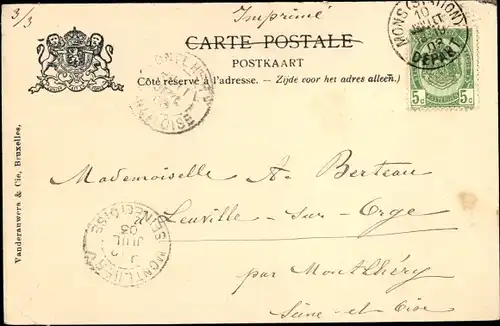 3/3
Imprimé
CARTE POSTALE
POSTKAART
Côté réservé à l'adresse. – Zijde voor het adres alleen.)
MONS (STATION)
10
JUILLET
03
DEPART
5c 5c
Mademoiselle A. Berteau
Leuville-sur-Orge
par Montlhéry
Seine et Oise
MONTLHERY
JUIL
03
SEINE-ET-OISE
Vanderauwera & Cie, Bruxelles,